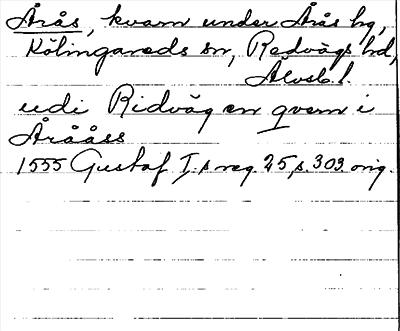 Årås, kvarn under Årås hg,
Kölingareds sn, Redvägs hd,
Älvsb. l.
udi Ridväg en qvern i
Årååss
1555 Gustaf I:s reg. 25 s. 303. orig.